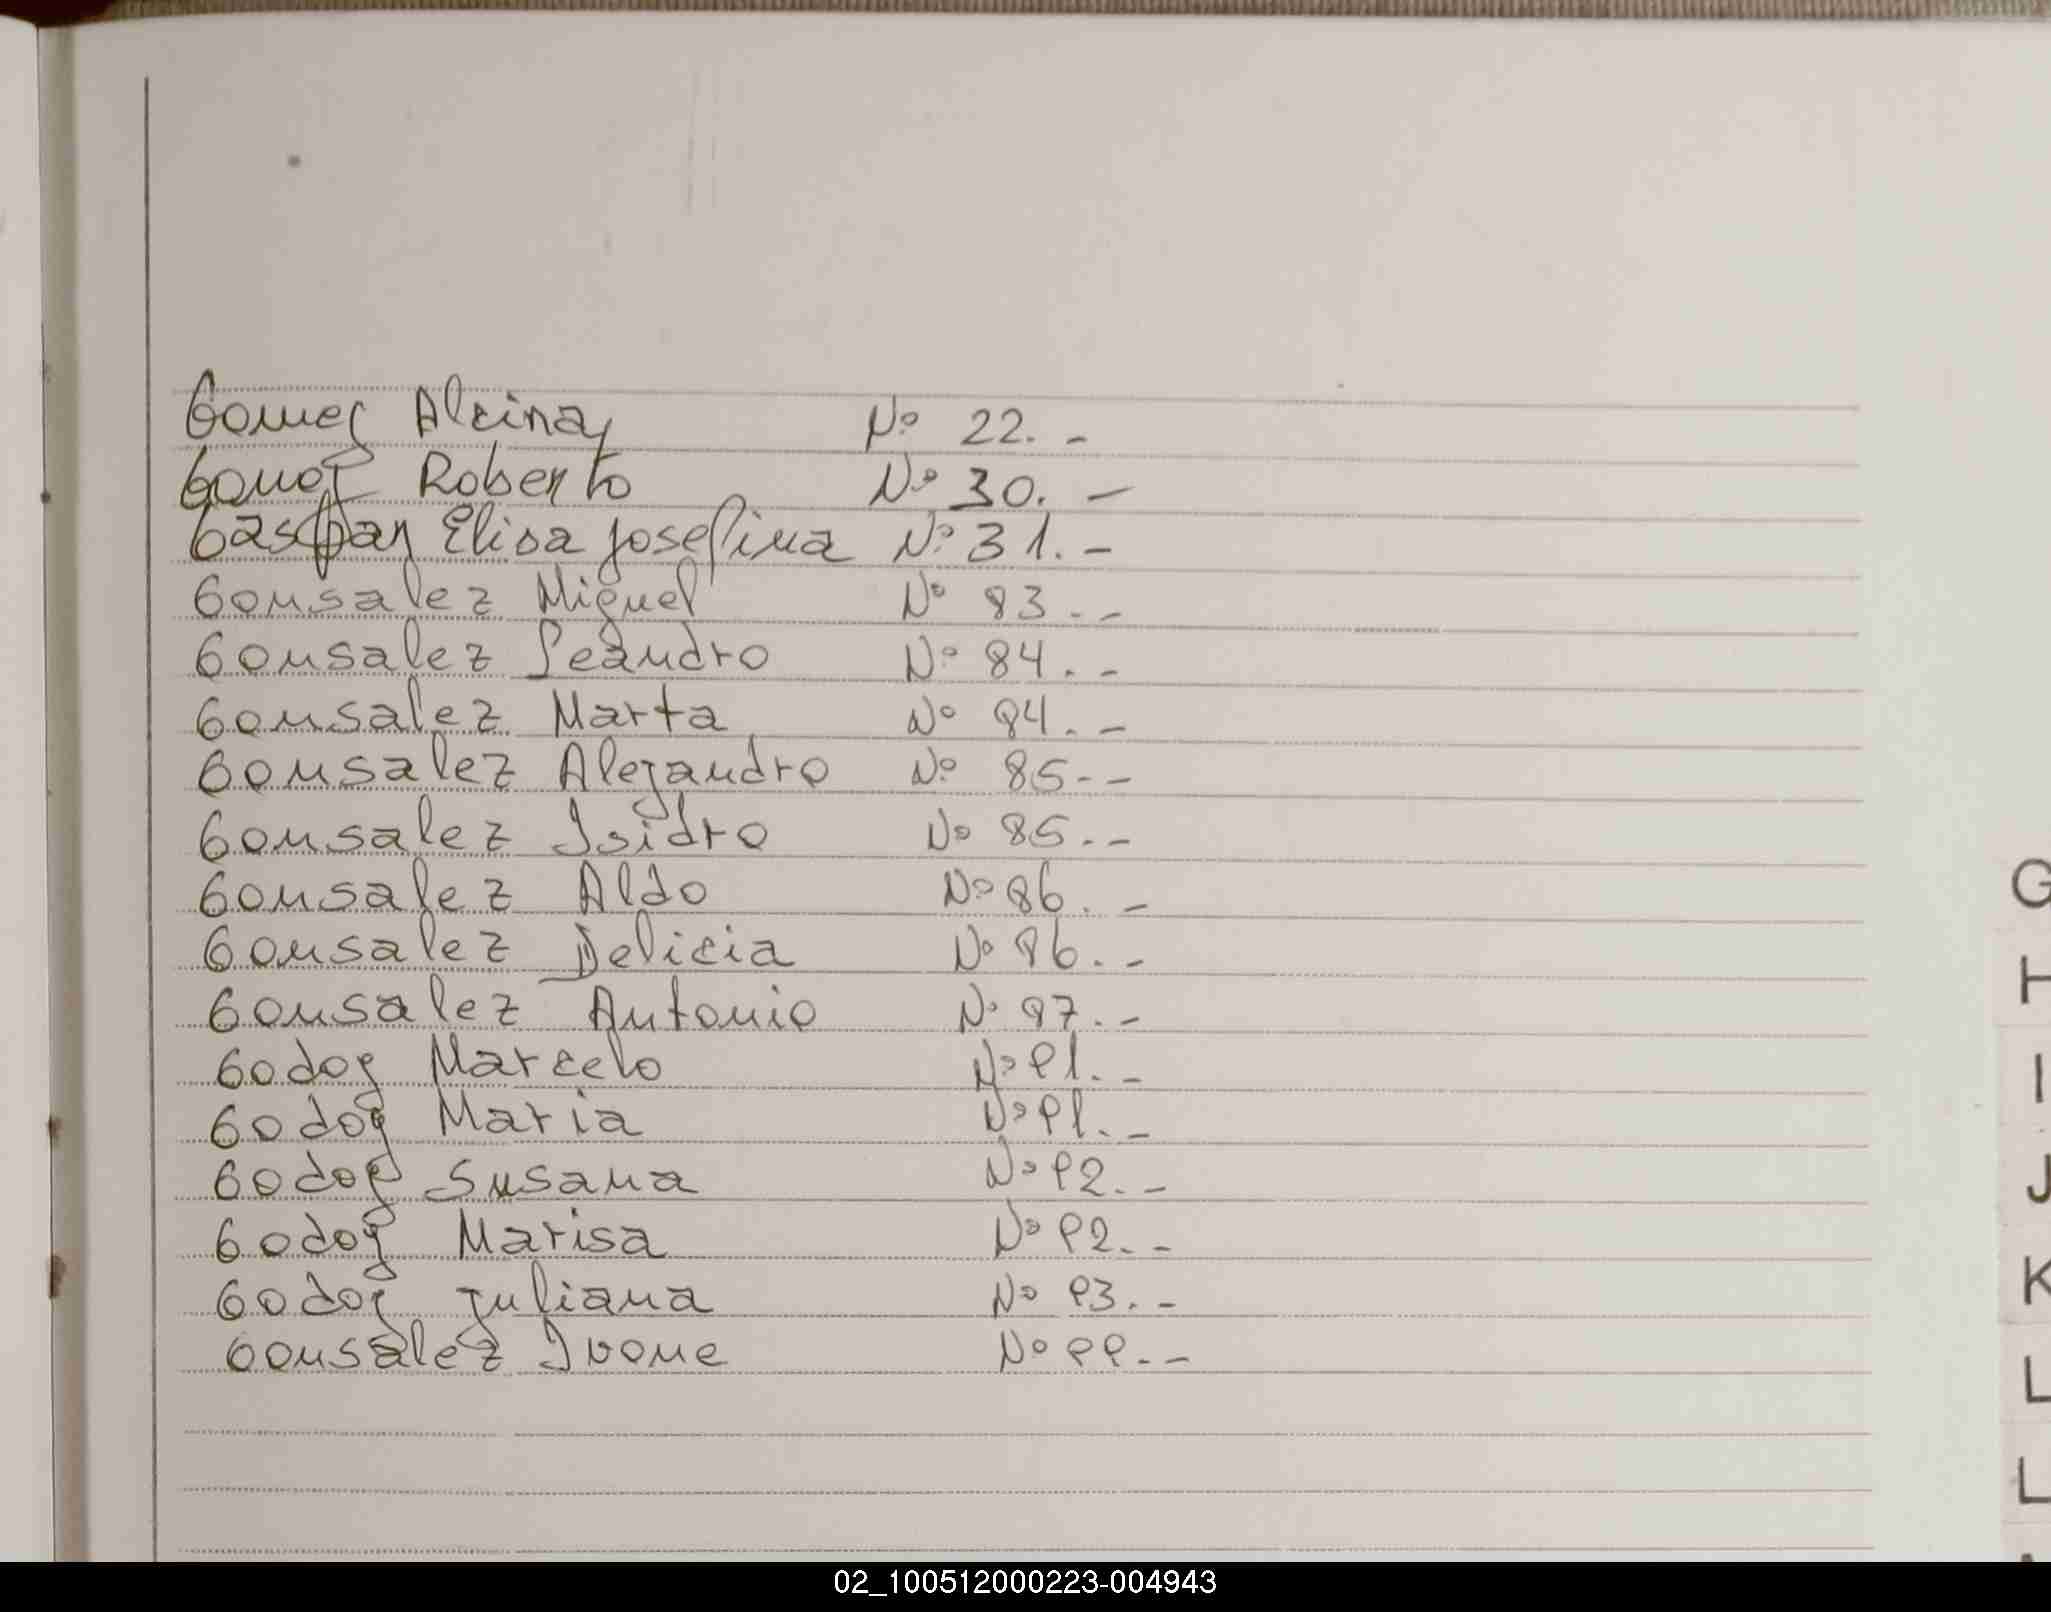 Gomez Alcina N° 22. -
Gomez Roberto N° 30. -
Gaspar Elisa Josefina N° 31. -
Gonsalez Miguel N° 83. -
Gonsalez Leandro N° 84. -
Gonsalez Marta N° 84. -
Gonsalez Alejandro N° 85. -
Gonsalez Isidro N° 85. -
Gonsalez Aldo N° 86. -
Gonsalez Delicia N° 86. -
Gonsalez Antonio N° 87. -
Godoy Marcelo N° 91. -
Godoy Maria N° 91. -
Godoy Susana N° 92. -
Godoy Marisa N° 92. -
Godoy Juliana N° 93. -
Gonsalez Ivone N° 99. -
G
H
I
J
K
L
L
02_100512000223-004943